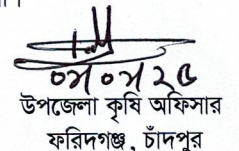 ০৯।০৯।২৫
উপজেলা কৃষি অফিসার
ফরিদগঞ্জ, চাঁদপুর